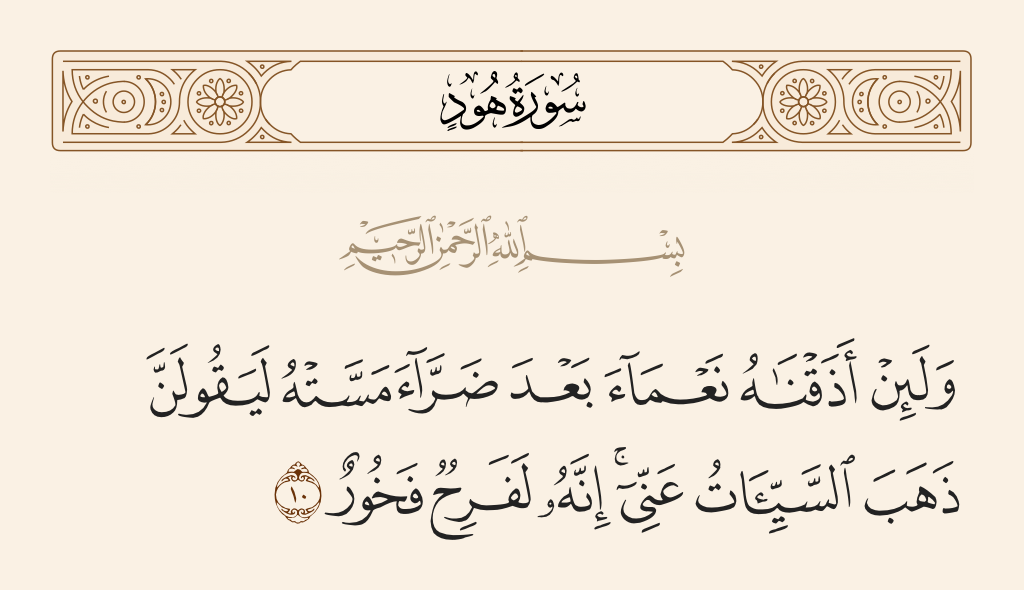 سُورَةُ هُودٍ
بِسْمِ ٱللَّهِ ٱلرَّحْمَٰنِ ٱلرَّحِيمِ
وَلَئِنْ أَذَقْنَٰهُ نَعْمَآءَ بَعْدَ ضَرَّآءَ مَسَّتْهُ لَيَقُولَنَّ
ذَهَبَ ٱلسَّيِّـَٔاتُ عَنِّىٓ ۚ إِنَّهُۥ لَفَرِحٌ فَخُورٌ ١٠